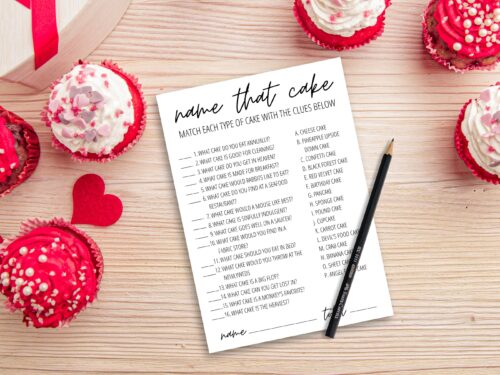 name that cake
MATCH EACH TYPE OF CAKE WITH THE CLUES BELOW
1. WHAT CAKE DO YOU EAT ANNUALLY?
2. WHAT CAKE IS GOOD FOR CLEANING?
3. WHAT CAKE DO YOU GET IN HEAVEN?
4. WHAT CAKE IS MADE FOR BREAKFAST?
5. WHAT CAKE WOULD RABBITS LIKE TO EAT?
6. WHAT CAKE DO YOU FIND AT A SEAFOOD
RESTAURANT?
7. WHAT CAKE WOULD A MOUSE LIKE BEST?
8. WHAT CAKE IS SINFULLY INDULGENT?
9. WHAT CAKE GOES WELL ON A SAUCER?
10. WHAT CAKE WOULD YOU FIND IN A
FABRIC STORE?
11. WHAT CAKE SHOULD YOU EAT IN BED?
12. WHAT CAKE WOULD YOU THROW AT THE
NEWLYWEDS
13. WHAT CAKE IS A BIG FLOP?
14. WHAT CAKE CAN YOU GET LOST IN?
15. WHAT CAKE IS A MONKEY'S FAVORITE?
16. WHAT CAKE IS THE HEAVIEST?
A. CHEESE CAKE
B. PINEAPPLE UPSIDE
DOWN CAKE
C. CONFETTI CAKE
D. BLACK FOREST CAKE
E. RED VELVET CAKE
F. BIRTHDAY CAKE
G. PANCAKE
H. SPONGE CAKE
I. POUND CAKE
J. CUPCAKE
K. CARROT CAKE
L. DEVIL'S FOOD
M. CRAB CAKE
N. BANANA
O. SHEET CAKE
P.
name